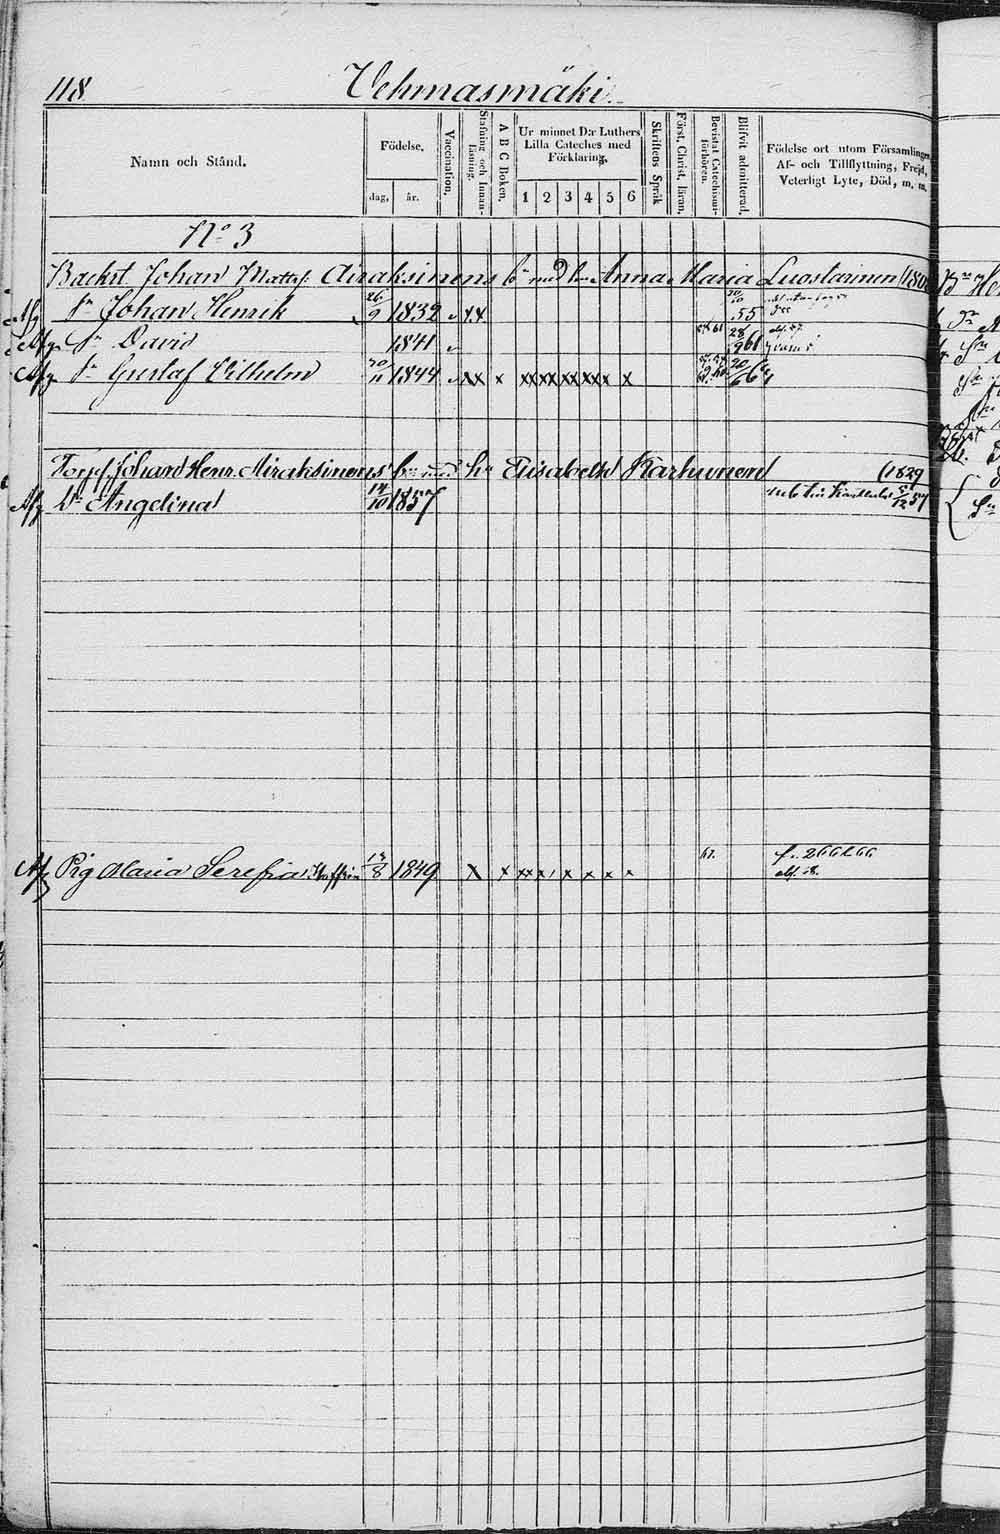 118.
Vehmasmäki.
Namn och Stånd.
Födelse.
dag.
år.
Vaccination.
Stafning och Innan-läsning.
A B C Boken.
Ur minnet D:r Luthers Lilla Cateches med Förklaring.
1 2 3 4 5 6
Skriftens Språk
Först. Christ. läran.
Bevistat Catechismi-förhören.
Blifvit admitterad.
Födelse ort utom Församlingen, Af- och Tillflyttning, Frejd, Veterligt Lyte, Död, m. m.
No 3
Backst Johan Matts: Airaksinens br med hu Anna Maria Luostarinen 180
Afg Sn Johan Henrik 26/9 1832 v x x 55
Afg Sn David 1841 v 61 28/9 61
Afg Sn Gustaf Vilhelm 1844 v x x x xx xx xx xx x x 66
Johan Henr. Airaksinens br med hu Elisabeth Karhunen (1829
Afg Dr Angelina 14/10 1857 5/12 57
Afg Pig Maria Serefia 13/8 1849 x x xx x x x x x 67. f. 266 & 66